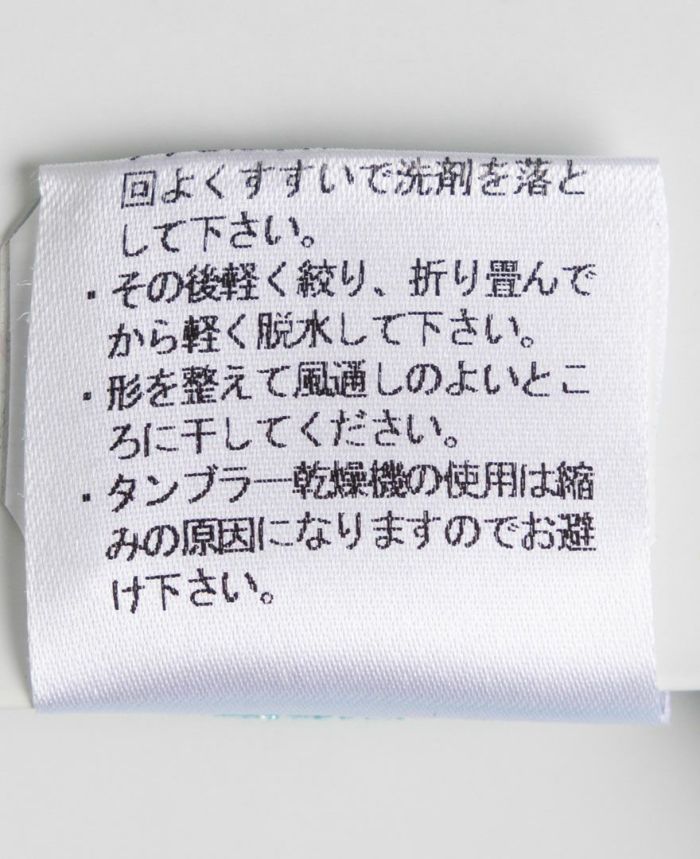 回よくすすいで洗剤を落と
して下さい。
・その後軽く絞り、折り畳んで
から軽く脱水して下さい。
・形を整えて風通しのよいとこ
ろに干してください。
・タンブラー乾燥機の使用は縮
みの原因になりますのでお避
け下さい。